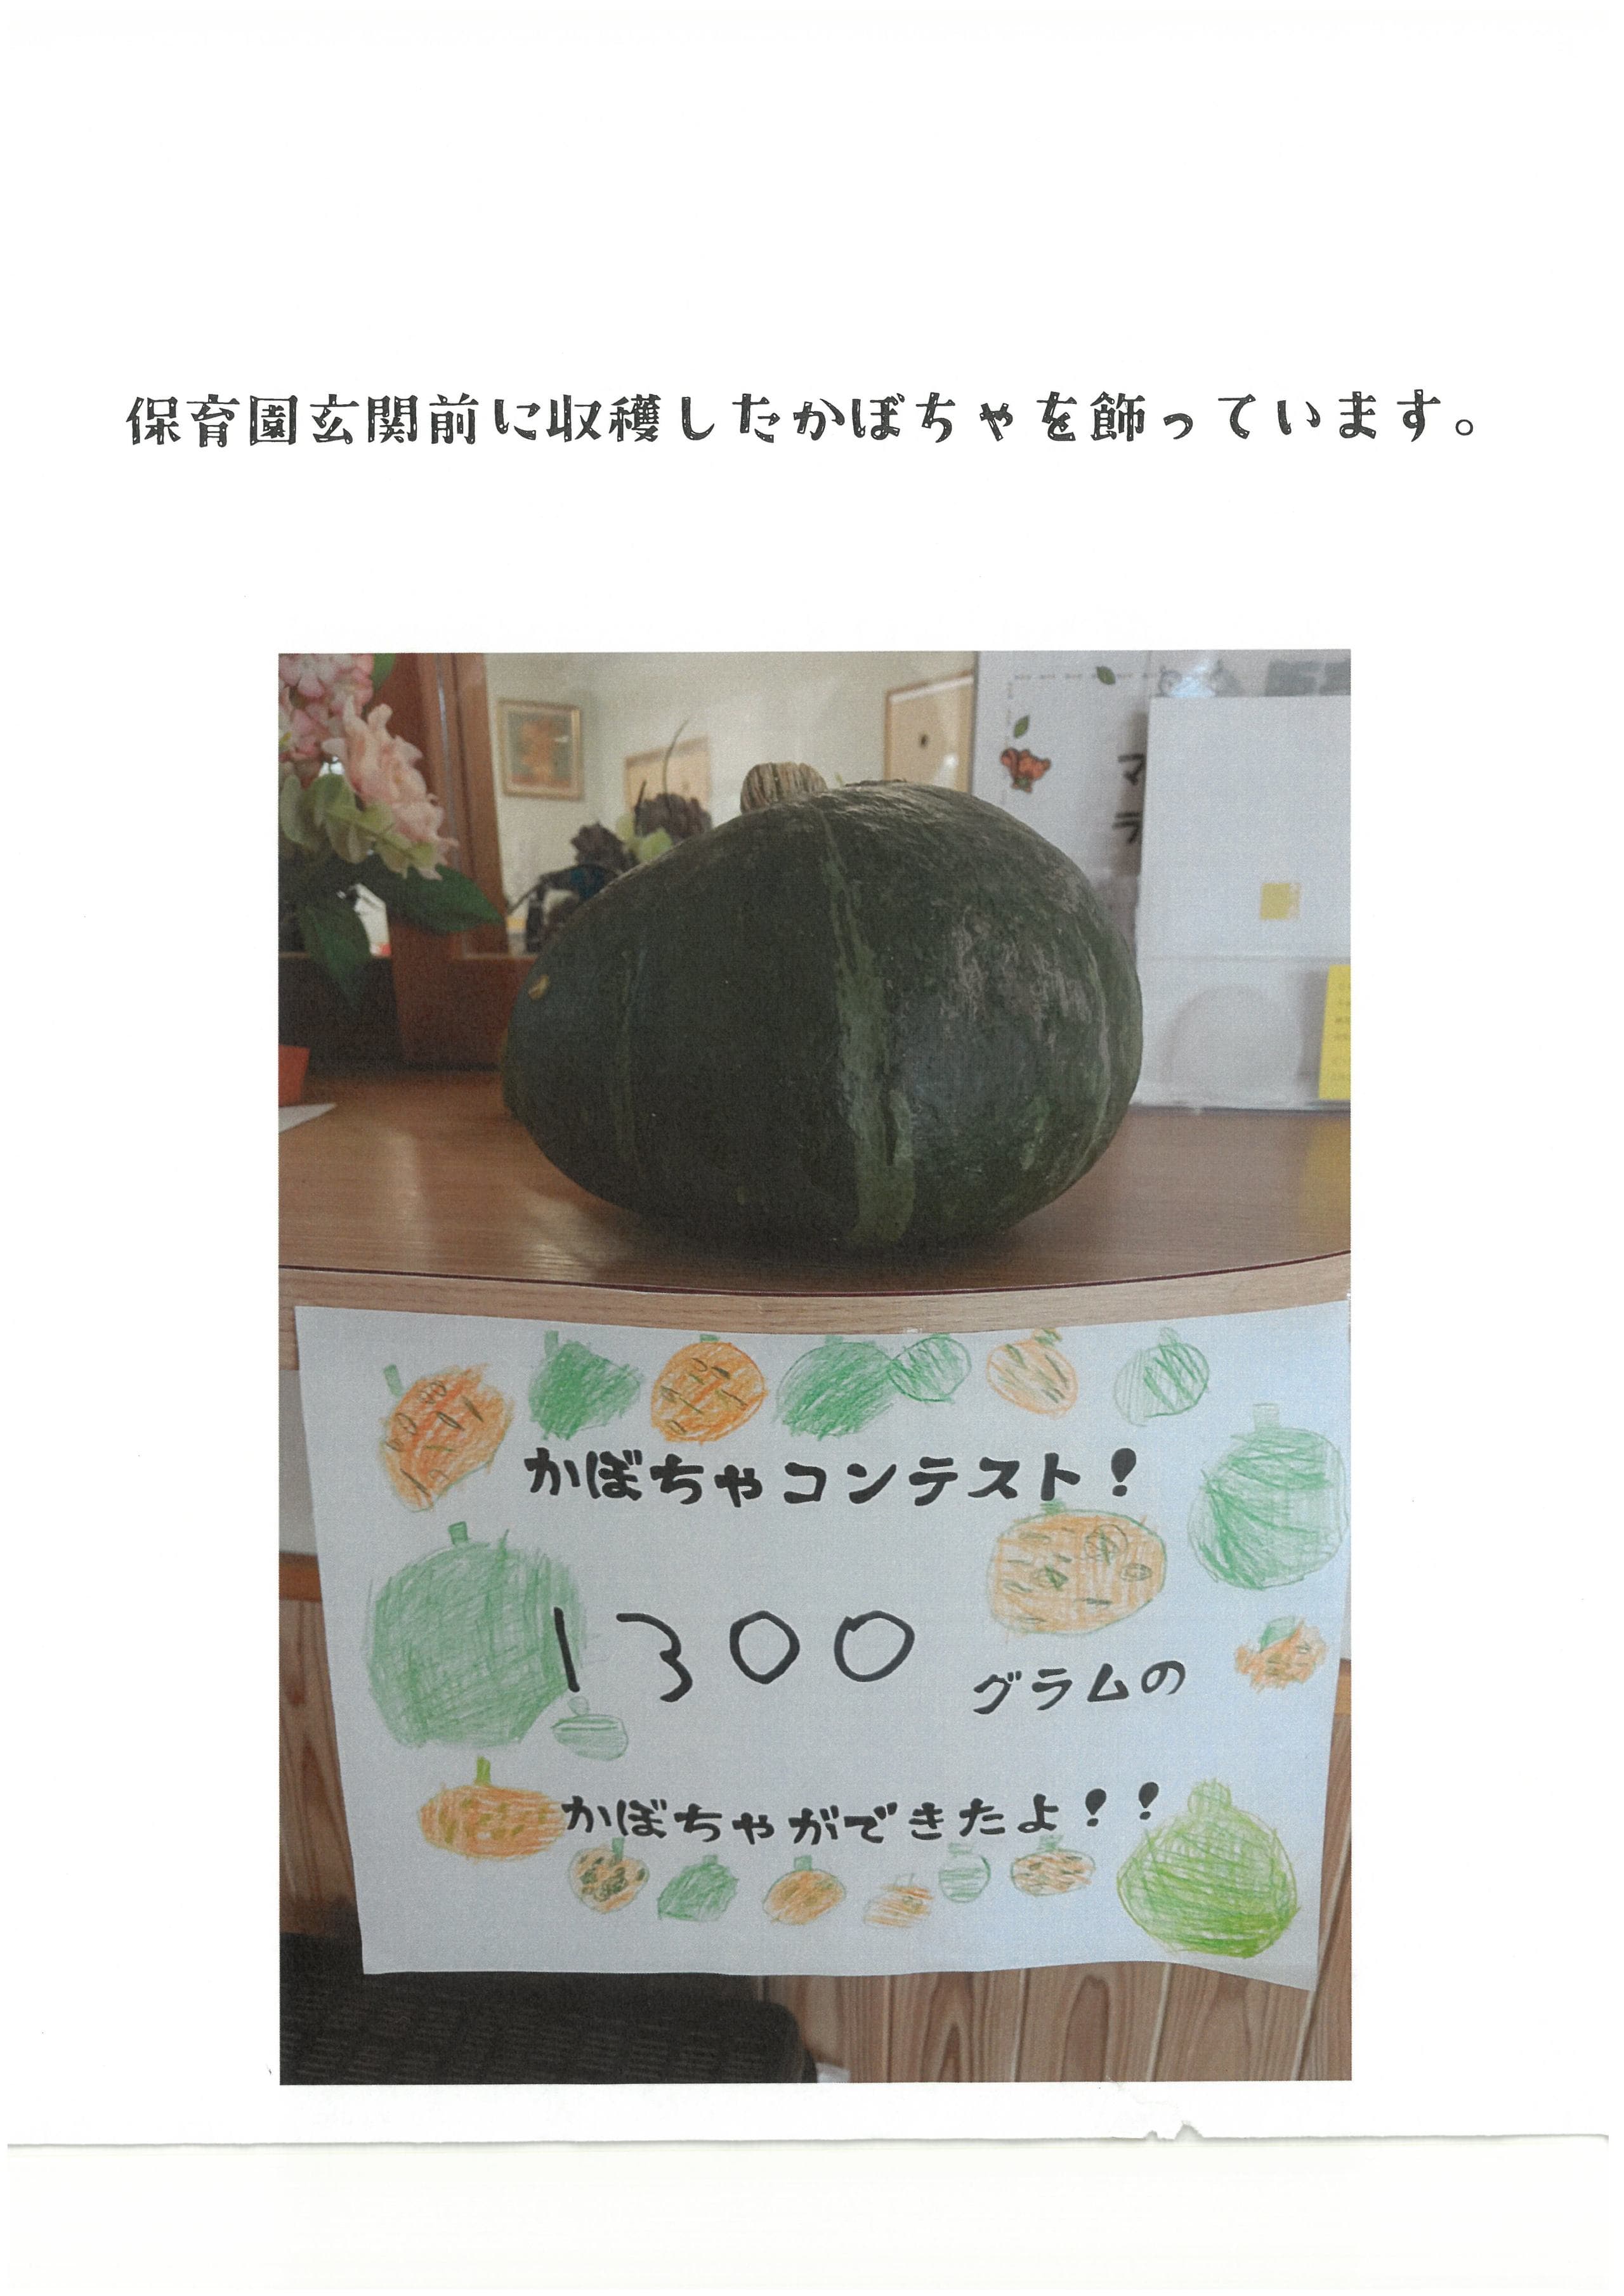 保育園玄関前に収穫したかぼちゃを飾っています。
マ
ラ
かぼちゃコンテスト!
1300
グラムの
かぼちゃができたよ!!